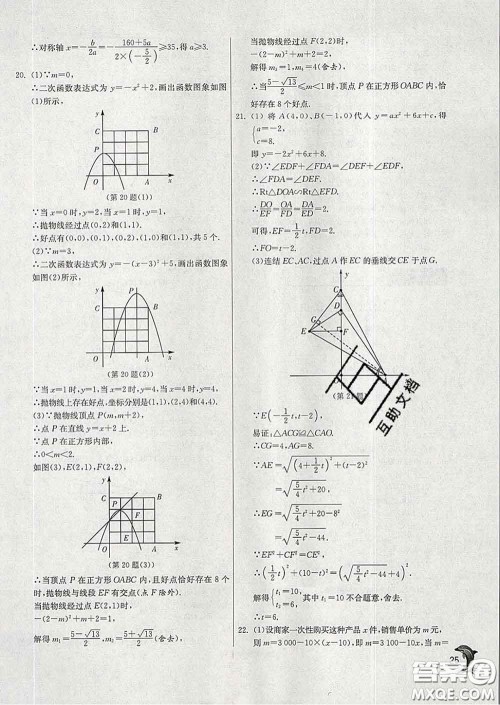 ∴对称轴 x=-b/2a=-(160+5a)/(2×(-5/2))≥35,得 a≥3.
20. (1)∵m=0,
∴二次函数表达式为 y=-x²+2,画出函数图象如图(1)所示,
y
C
B
P
O
A
x
(第 20 题(1))
∵当 x=0 时,y=2,当 x=1 时,y=1,
∴抛物线经过点(0,2)和(1,1).
∴好点有(0,0),(0,1),(0,2),(1,0)和(1,1),共 5 个.
(2)∵m=3,
∴二次函数表达式为 y=-(x-3)²+5,画出函数图象如图(2)所示,
y
P
C
B
O
A
x
(第 20 题(2))
∵当 x=1 时,y=1,当 x=2 时,y=4,当 x=4 时,y=4,
∴抛物线上存在好点,坐标分别是(1,1),(2,4)和(4,4).
(3)∵抛物线顶点 P(m,m+2),
∴点 P 在直线 y=x+2 上.
∵点 P 在正方形内部,
∴0<m<2.
如图(3),E(2,1),F(2,2),
y
C
P
F
B
E
O
A
x
(第 20 题(3))
∴当顶点 P 在正方形 OABC 内,且好点恰好存在 8 个时,抛物线与线段 EF 有交点(点 F 除外).
当抛物线经过点 E(2,1)时,
-(2-m)²+m+2=1,
解得 m₁=(5-√13)/2,m₂=(5+√13)/2(舍去).
当抛物线经过点 F(2,2)时,
-(2-m)²+m+2=2,
解得 m₁=1,m₂=4(舍去),
∴当 (5-√13)/2≤m<1 时,顶点 P 在正方形 OABC 内,恰好存在 8 个好点.
21. (1) 将 A(4,0)、B(-1,0)代入 y=ax²+6x+c,得
{a=-2,
c=8.
即 y=-2x²+6x+8.
(2)∵∠EDF+∠FDA=∠DEF+∠EDF,
∴∠FDA=∠DEF.
∴Rt△DOA∽Rt△EFD.
∴DO/EF=OA/FD=DA/ED=2.
可得,EF=1/2 t,FD=2.
∴FO=t-2.
(3)连结 EC、AC,过点 A 作 EC 的垂线交 CE 于点 G.
C
G
D
E
F
∵E(-1/2 t,t-2),
易证:△ACG≌△CAO.
∴CG=4,AG=8.
∵AE=√((4+1/2 t)²+(t-2)²)
=√(5/4 t²+20),
∴EG=√(5/4 t²+20-8²)
=√(5/4 t²-44).
∵EF²+CF²=CE²,
∴(1/2 t)²+(10-t)²=(√(5/4 t²-44)+4)²,
解得{t₁=10,
t₂=6, 其中 t₁=10 不合题意,舍去.
∴t=6.
22. (1)设商家一次性购买这种产品 x 件,销售单价为 m 元,
则 m=3 000-10×(x-10),即 m=3 100-10x,当 m=
互助文档
25
答案圈
MXQE.COM